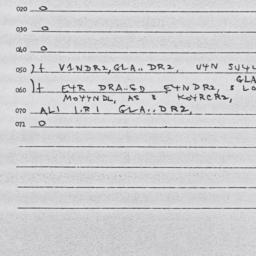 020 0
030 0
040 0
050 )t V1NDR2, GLA.. DR2, U4N SU4L
GLA
060 )t E4R DRA..GD E4NDR2, 3 LO
MO44NDL, AS 3 KO4RCR2,
070 AL1 1.R1 GLA..DR2,
072 0